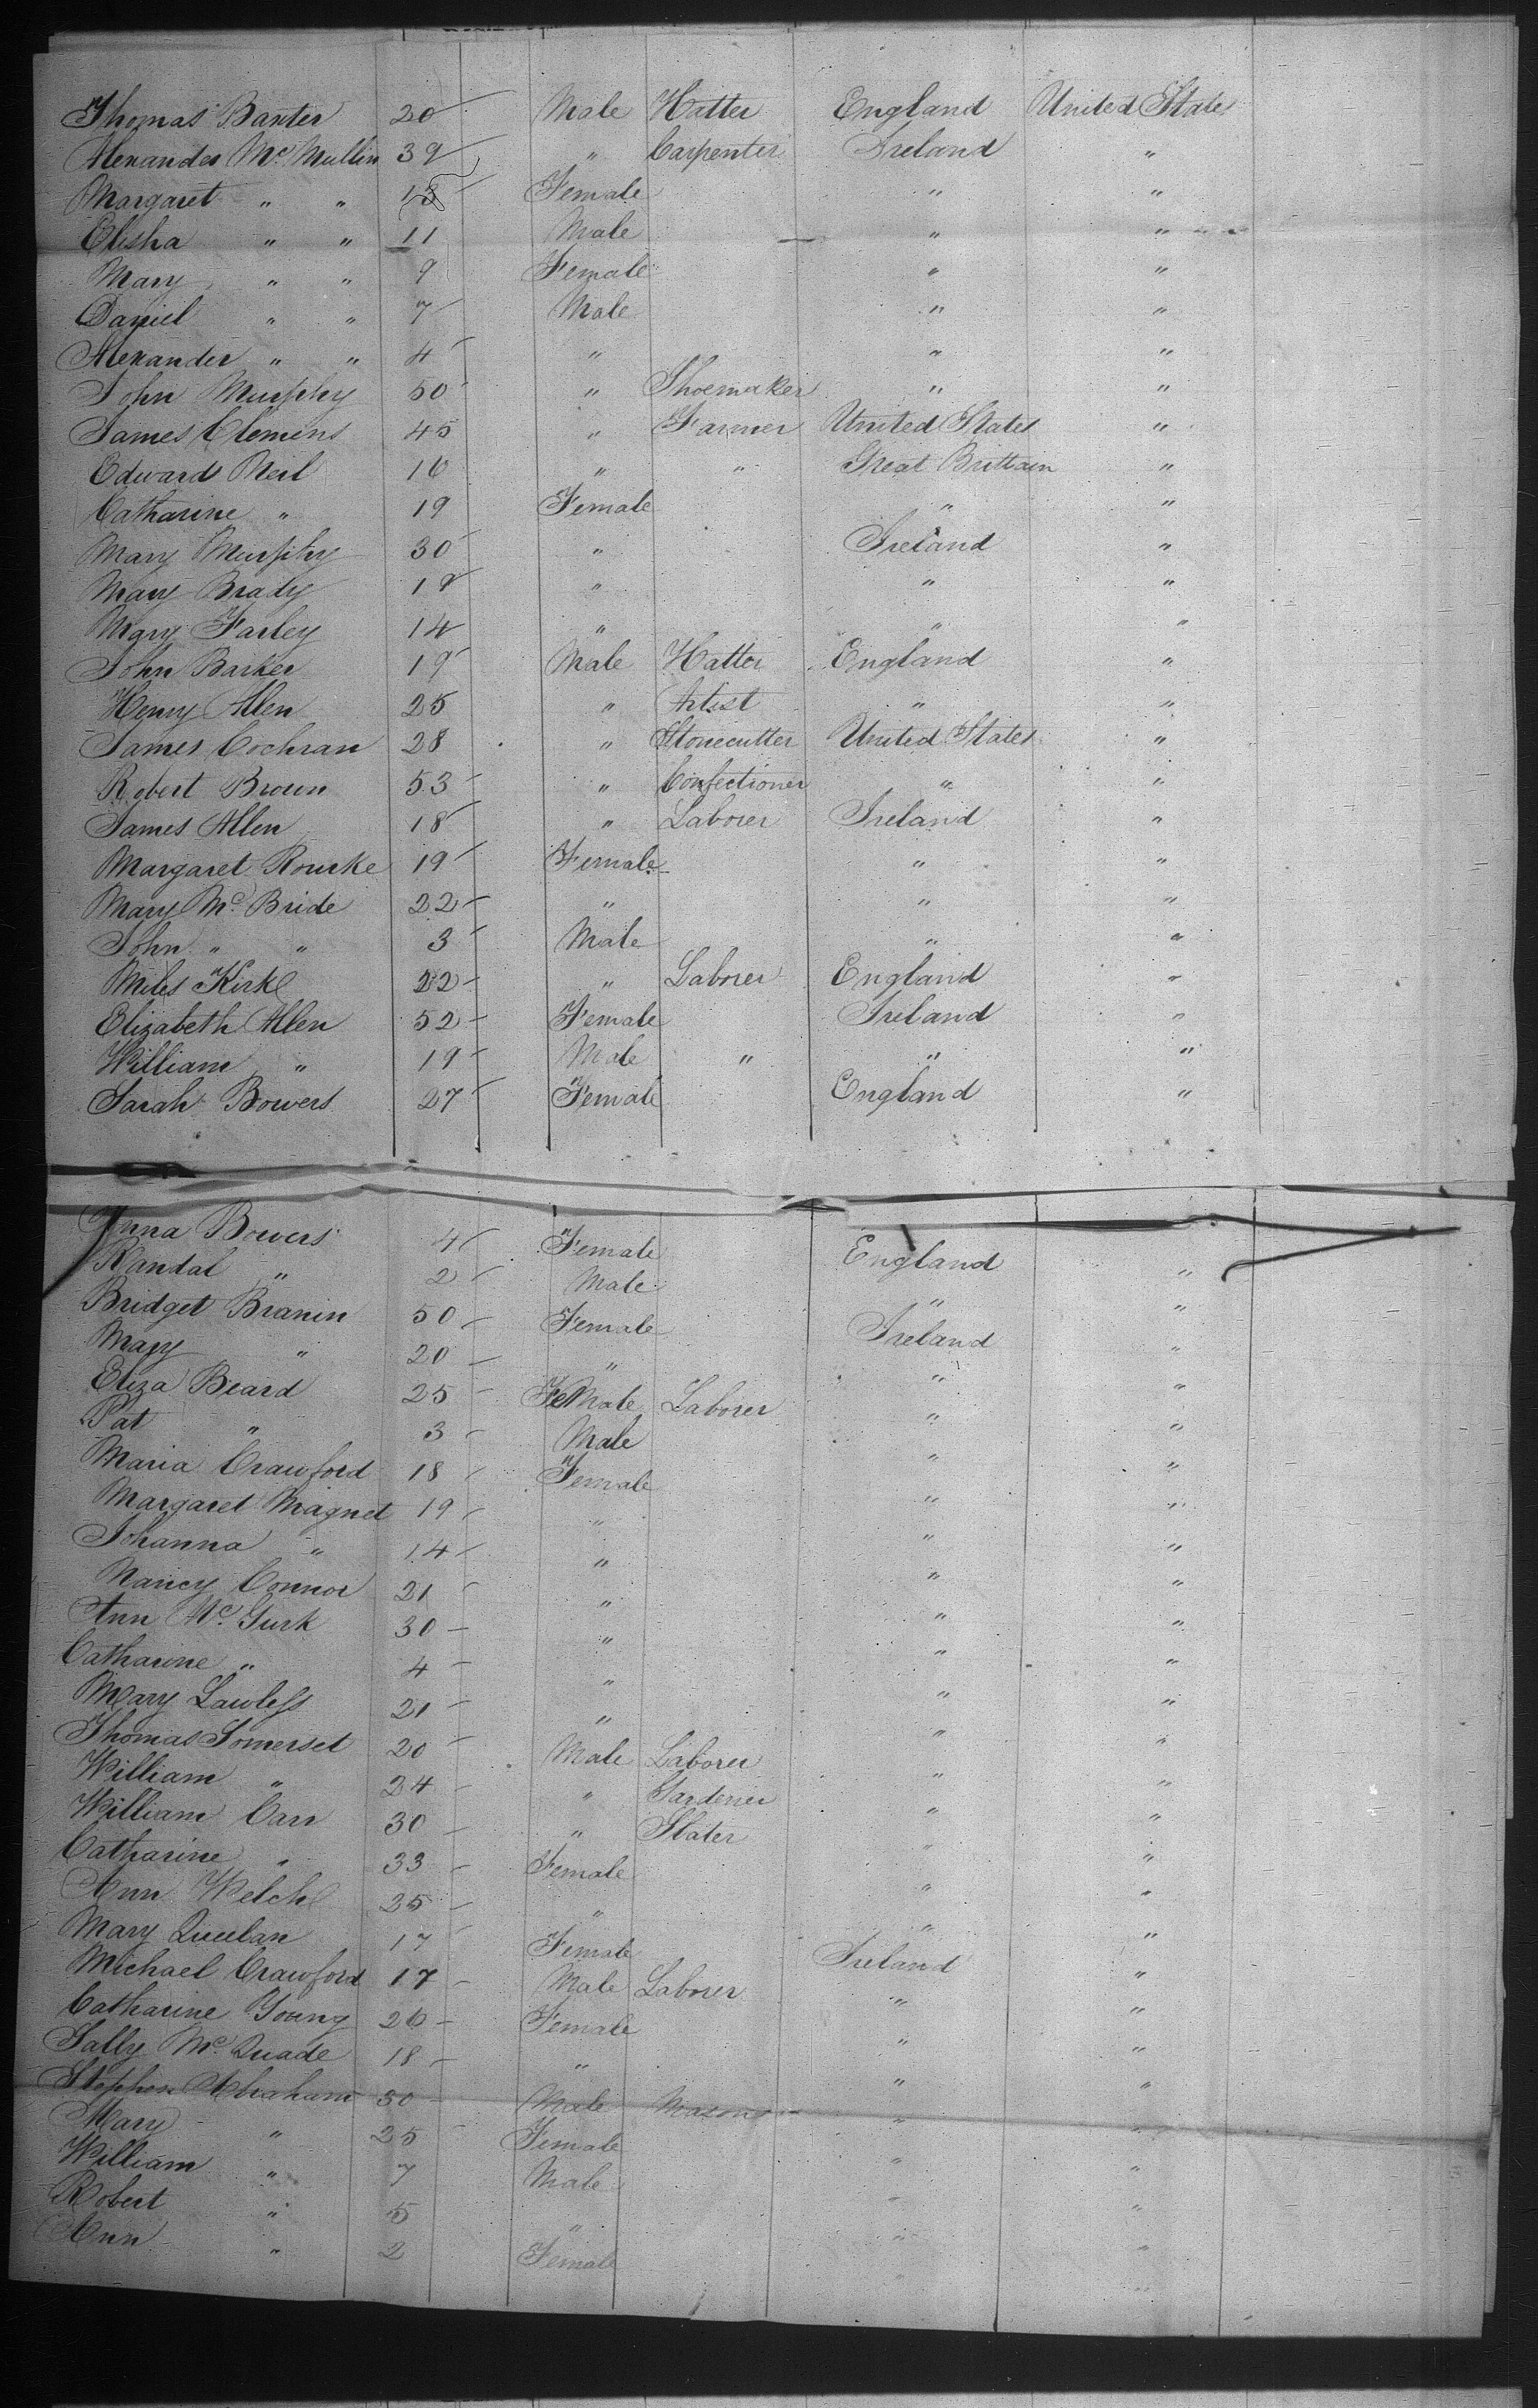 Thomas Banter 20 Male Hatter England United States
Alexander Mc Mullin 39 " Carpenter Ireland "
Margaret " " 13 Female " "
Elisha " " 11 Male " "
Mary " " 9 Female " "
Daniel " " 7 Male " "
Alexander " " 4 " " "
John Murphy 50 " Shoemaker " "
James Clemens 45 " Farmer United States "
Edward Neil 16 " " Great Brittain "
Catharine " 19 Female " "
Mary Murphy 30 " Ireland "
Mary Brady 19 " " "
Mary Farley 14 " " "
John Barker 19 Male Hatter England "
Henry Allen 25 " Artist " "
James Cochran 28 " Stonecutter United States "
Robert Brown 53 " Confectioner " "
James Allen 18 " Laborer Ireland "
Margaret Rourke 19 Female " "
Mary Mc Bride 22 " " "
John " " 3 Male " "
Miles Kirk 22 " Laborer England "
Elizabeth Allen 52 Female Ireland "
William " 19 Male " " "
Sarah Bowers 27 Female England "
Anna Bowers 4 Female England "
Randal " 2 Male " "
Bridget Branin 50 Female Ireland "
Mary " 20 " " "
Eliza Beard 25 FeMale Laborer " "
Pat " 3 Male " "
Maria Crawford 18 Female " "
Margaret Magnet 19 " " "
Johanna " 14 " " "
Nancy Connor 21 " " "
Ann Mc Gurk 30 " " "
Catharine " 4 " " "
Mary Lawless 21 " " "
Thomas Somerset 20 Male Laborer " "
William " 24 " Gardener " "
William Carr 30 " Slater " "
Catharine " 33 Female " "
Ann Welch 25 " " "
Mary Queelan 17 Female Ireland "
Michael Crawford 17 Male Laborer " "
Catharine Young 26 Female " "
Sally Mc Quade 18 " " "
Stephen Abraham 30 Male Mason " "
Mary " 25 Female " "
William " 7 Male " "
Robert " 5 " " "
Ann " 2 Female " "